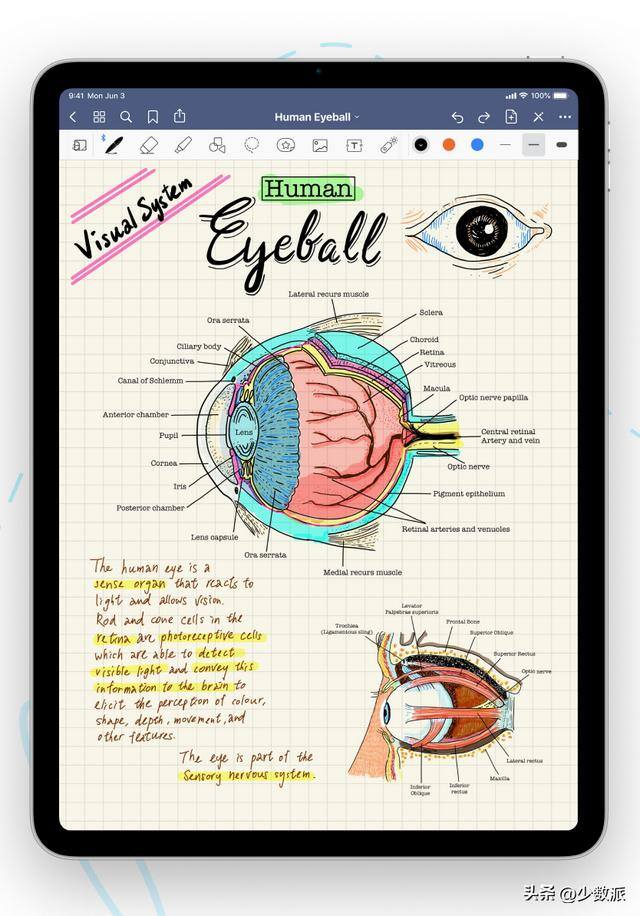 9:41 Mon Jun 3
100%
Human Eyeball
Visual System
Human
Eyeball
Lateral recurs muscle
Ora serrata
Sclera
Ciliary body
Choroid
Conjunctiva
Retina
Vitreous
Canal of Schlemm
Macula
Optic nerve papilla
Anterior chamber
Pupil
Lens
Central retinal
Artery and vein
Cornea
Optic nerve
Iris
Pigment epithelium
Posterior chamber
Retinal arteries and venuoles
Lens capsule
Ora serrata
Medial recurs muscle
The human eye is a
sense organ that reacts to
light and allows vision.
Rod and cone cells in the
retina are photoreceptive cells
which are able to detect
visible light and convey this
information to the brain to
elicit the perception of colour,
shape, depth, movement, and
other features.
The eye is part of the
Sensory nervous system.
Levator
Palpebrae superioris
Trochlea
(Ligamentous sling)
Frontal Bone
Superior Oblique
Superior Rectus
Optic nerve
Lateral rectus
Maxilla
Inferior
Oblique
Inferior
rectus
头条 @少数派